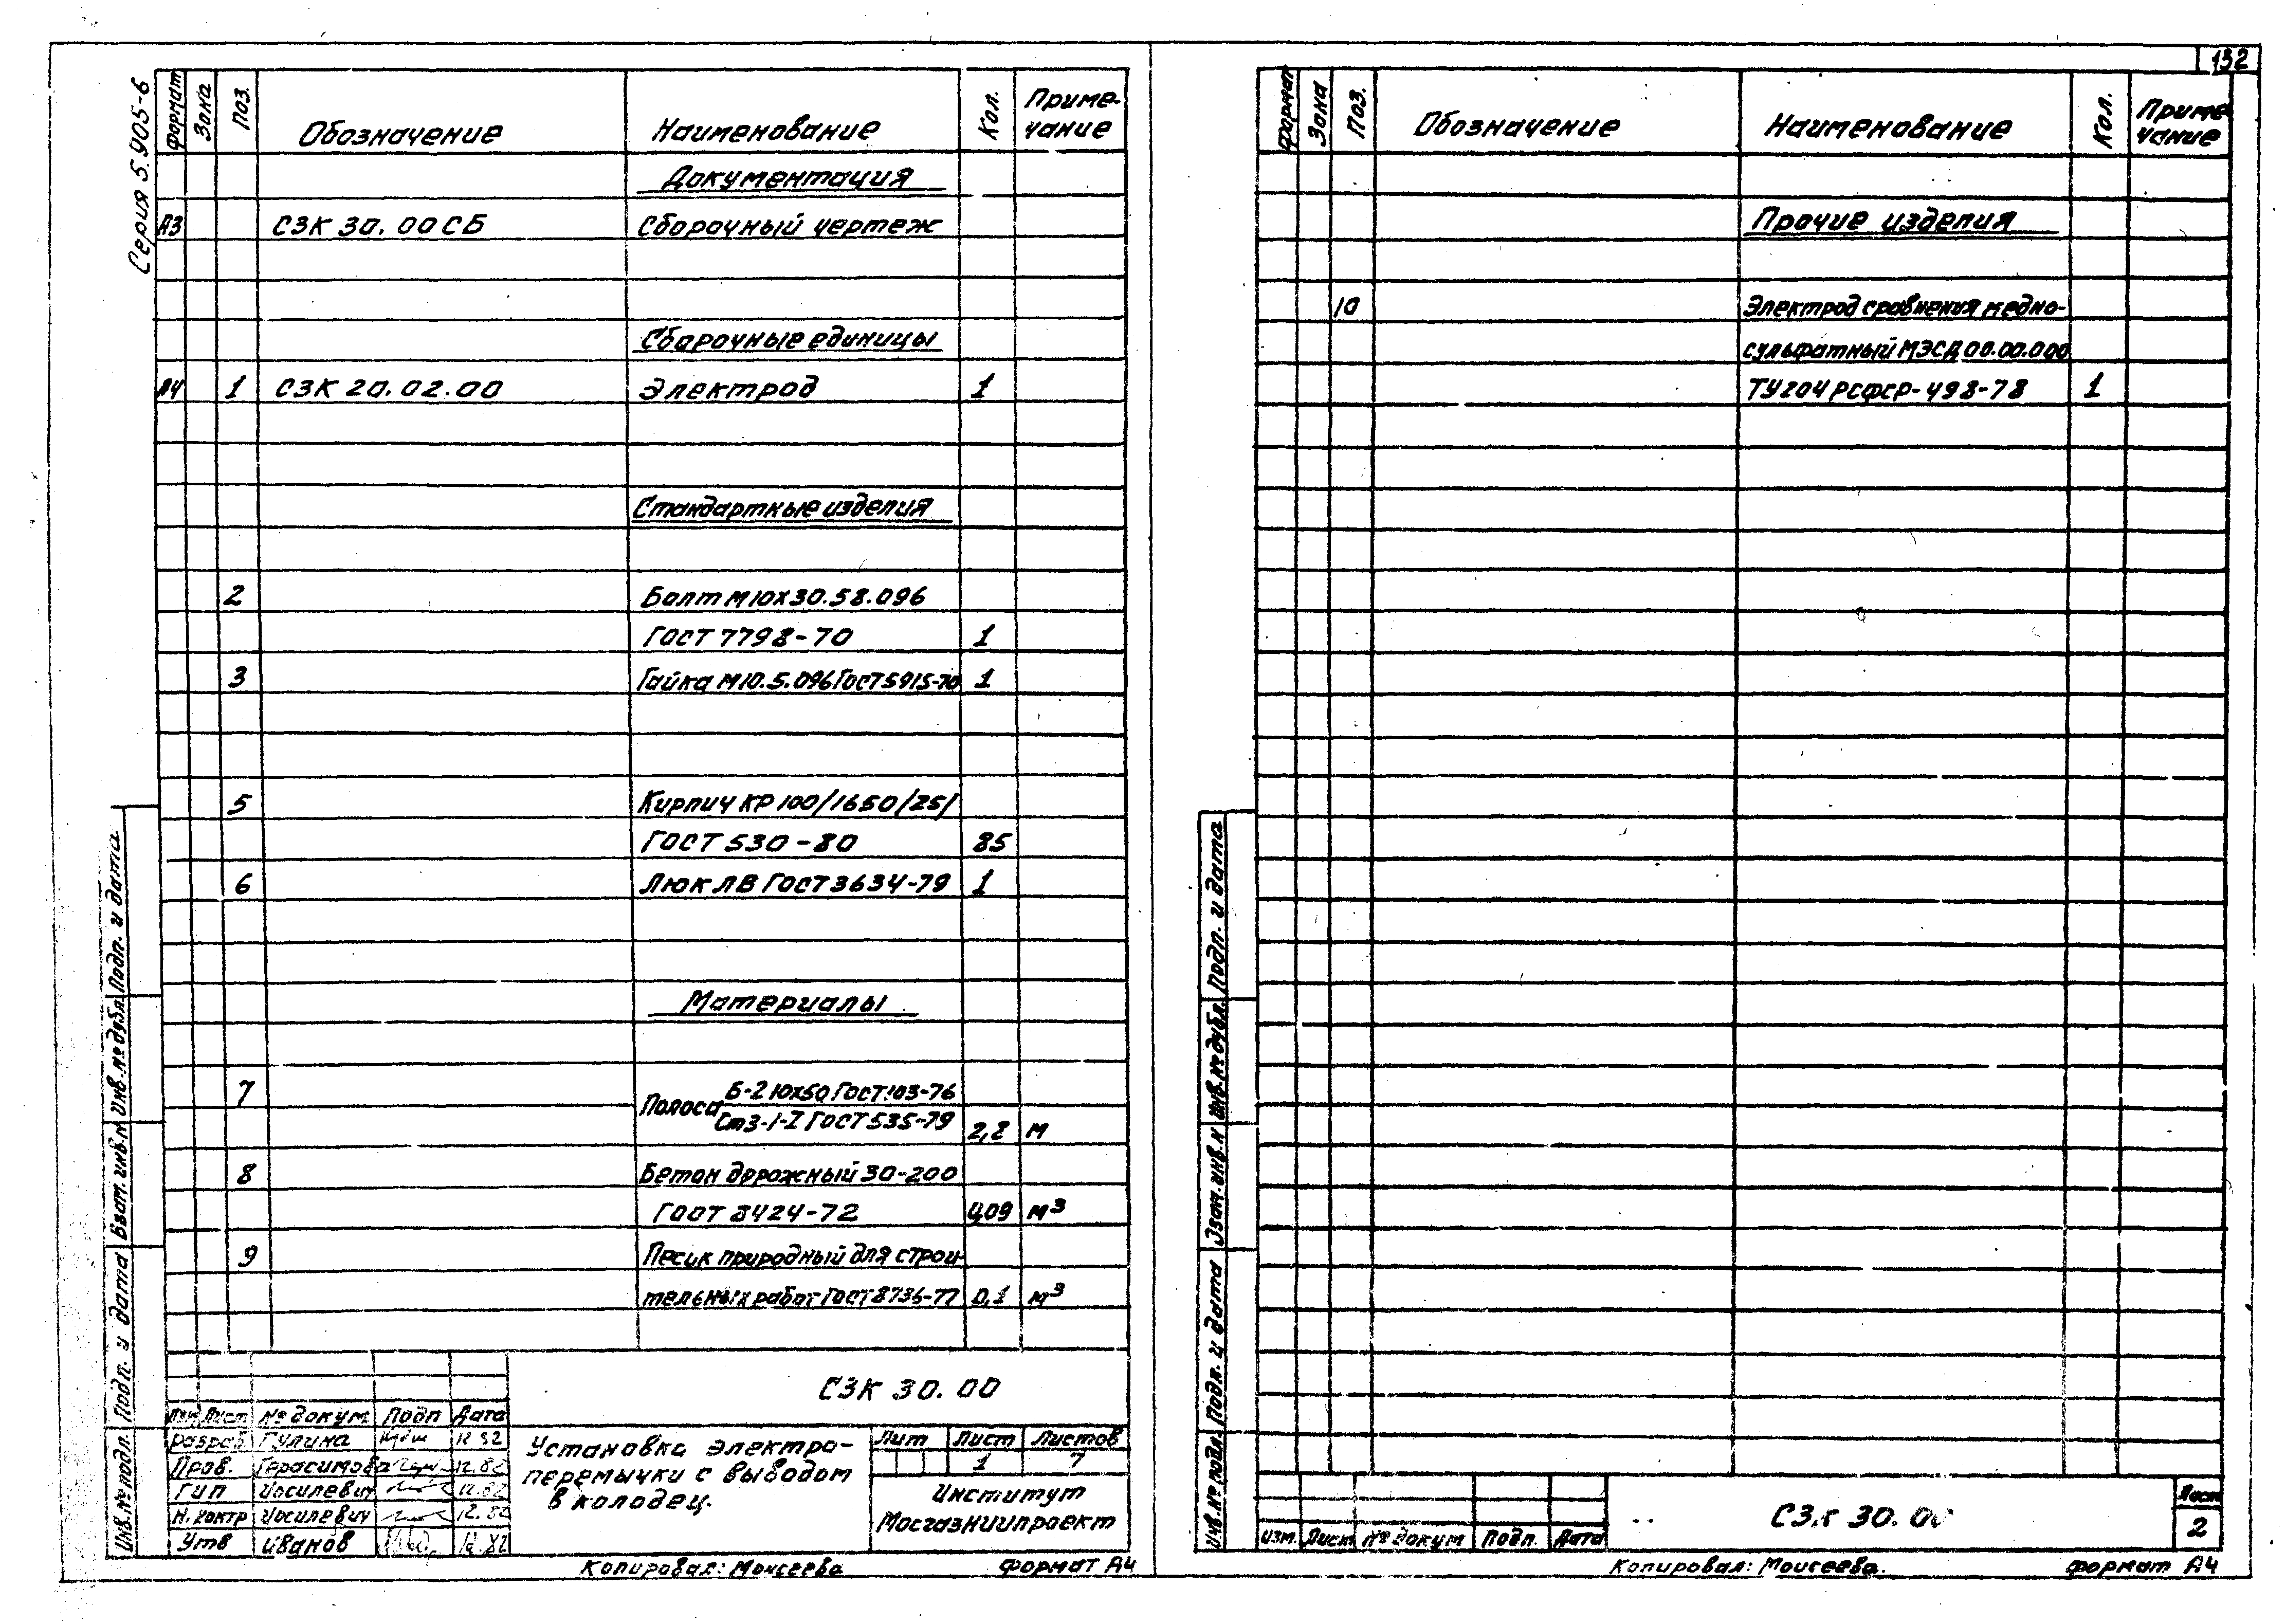 132
Серия 5.905-6
Формат Зона Поз. Обозначение Наименование Кол. Приме-
чание
Документация
А3 СЗК 30.00 СБ Сборочный чертеж
Сборочные единицы
А4 1 СЗК 20.02.00 Электрод 1
Стандартные изделия
2 Болт М10х30.58.096
ГОСТ 7798-70 1
3 Гайка М10.5.096 ГОСТ 5915-70 1
5 Кирпич КР 100/1650/25/
ГОСТ 530-80 85
6 Люк ЛВ ГОСТ 3634-79 1
Материалы
7 Полоса Б-2 10х50 ГОСТ 103-76
Ст3-1-I ГОСТ 535-79 2,2 м
8 Бетон дорожный 30-200
ГОСТ 8424-72 0,09 м³
9 Песок природный для строи-
тельных работ ГОСТ 8736-77 0,1 м³
СЗК 30.00
Изм Лист № докум Подп Дата
Разраб Гулина 12.82
Пров. Герасимова 12.82
ГИП Иосилевич 12.82
Н. контр Иосилевич 12.82
Утв Иванов 12.82
Установка электро-
перемычки с выводом
в колодец.
Лит Лист Листов
1 7
Институт
Мосгазниипроект
Копировал: Моисеева Формат А4
Подп. и дата
Инв. № дубл.
Взам. инв. №
Подп. и дата
Инв. № подл.
Формат Зона Поз. Обозначение Наименование Кол. Приме-
чание
Прочие изделия
10 Электрод сравнения медно-
сульфатный МЭСД 00.00.000
ТУ 204 РСФСР-498-78 1
Подп. и дата
Инв. № дубл.
Взам. инв. №
Подп. и дата
Инв. № подл.
Изм. Лист № докум Подп. Дата
СЗК 30.00
Лист
2
Копировал: Моисеева. Формат А4